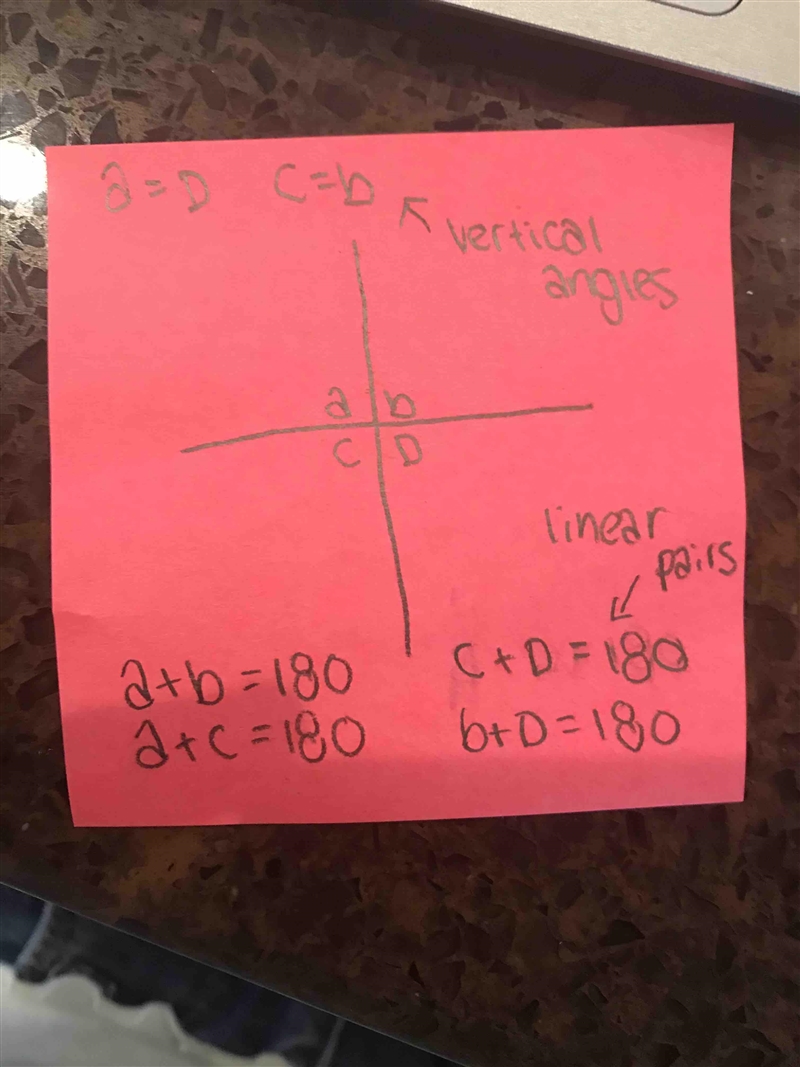 a = D c = b
vertical
angles
a b
c D
linear
pairs
a + b = 180 c + D = 180
a + c = 180 b + D = 180